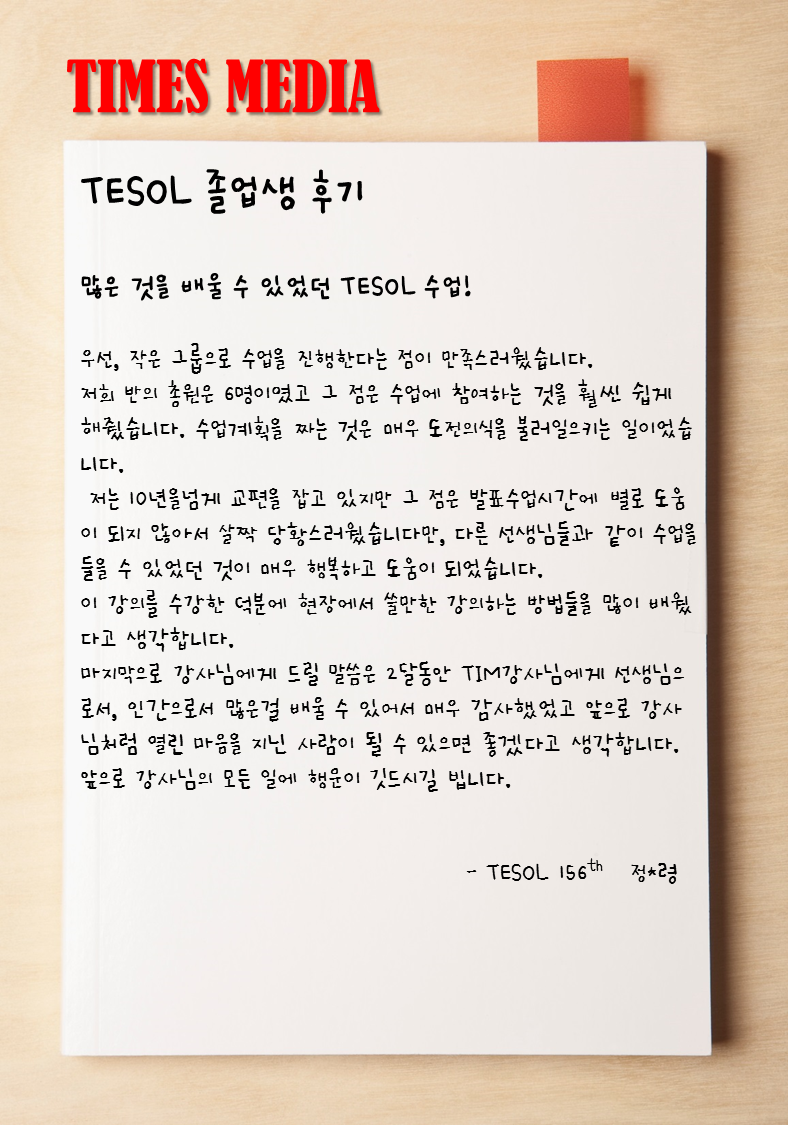 TIMES MEDIA
TESOL 졸업생 후기
많은 것을 배울 수 있었던 TESOL 수업!
우선, 작은 그룹으로 수업을 진행한다는 점이 만족스러웠습니다.
저희 반의 총원은 6명이였고 그 점은 수업에 참여하는 것을 훨씬 쉽게
해줬습니다. 수업계획을 짜는 것은 매우 도전의식을 불러일으키는 일이었습
니다.
저는 10년을넘게 교편을 잡고 있지만 그 점은 발표수업시간에 별로 도움
이 되지 않아서 살짝 당황스러웠습니다만, 다른 선생님들과 같이 수업을
들을 수 있었던 것이 매우 행복하고 도움이 되었습니다.
이 강의를 수강한 덕분에 현장에서 쓸만한 강의하는 방법들을 많이 배웠
다고 생각합니다.
마지막으로 강사님에게 드릴 말씀은 2달동안 TIM강사님에게 선생님으
로서, 인간으로서 많은걸 배울 수 있어서 매우 감사했었고 앞으로 강사
님처럼 열린 마음을 지닌 사람이 될 수 있으면 좋겠다고 생각합니다.
앞으로 강사님의 모든 일에 행운이 깃드시길 빕니다.
- TESOL 156th 정*령